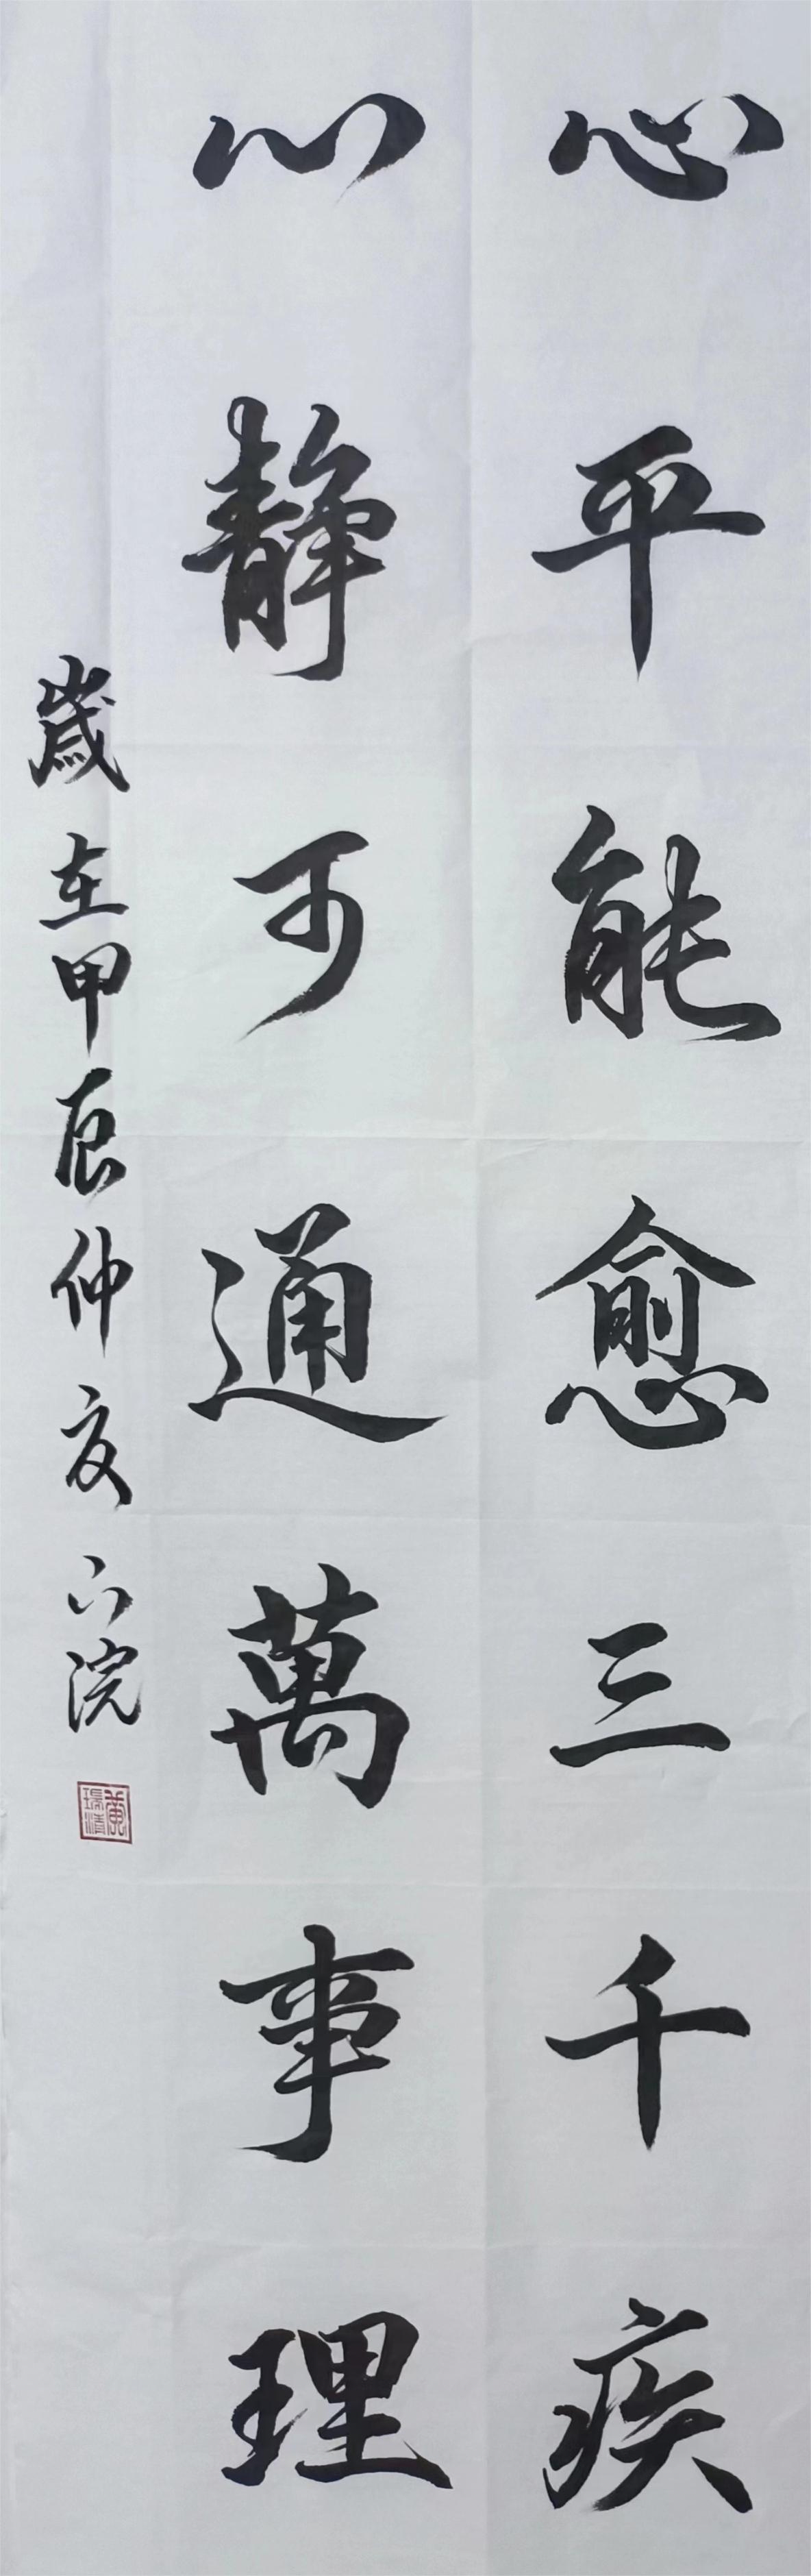 心平能愈三千疾
心静可通萬事理
歲在甲辰仲夏